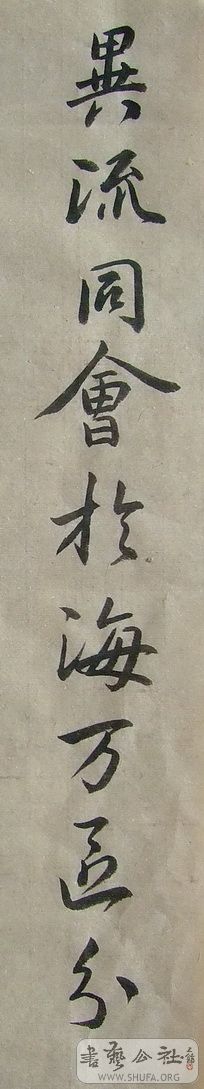 異流同會於海万區分
書藝公社
WWW.SHUFA.ORG